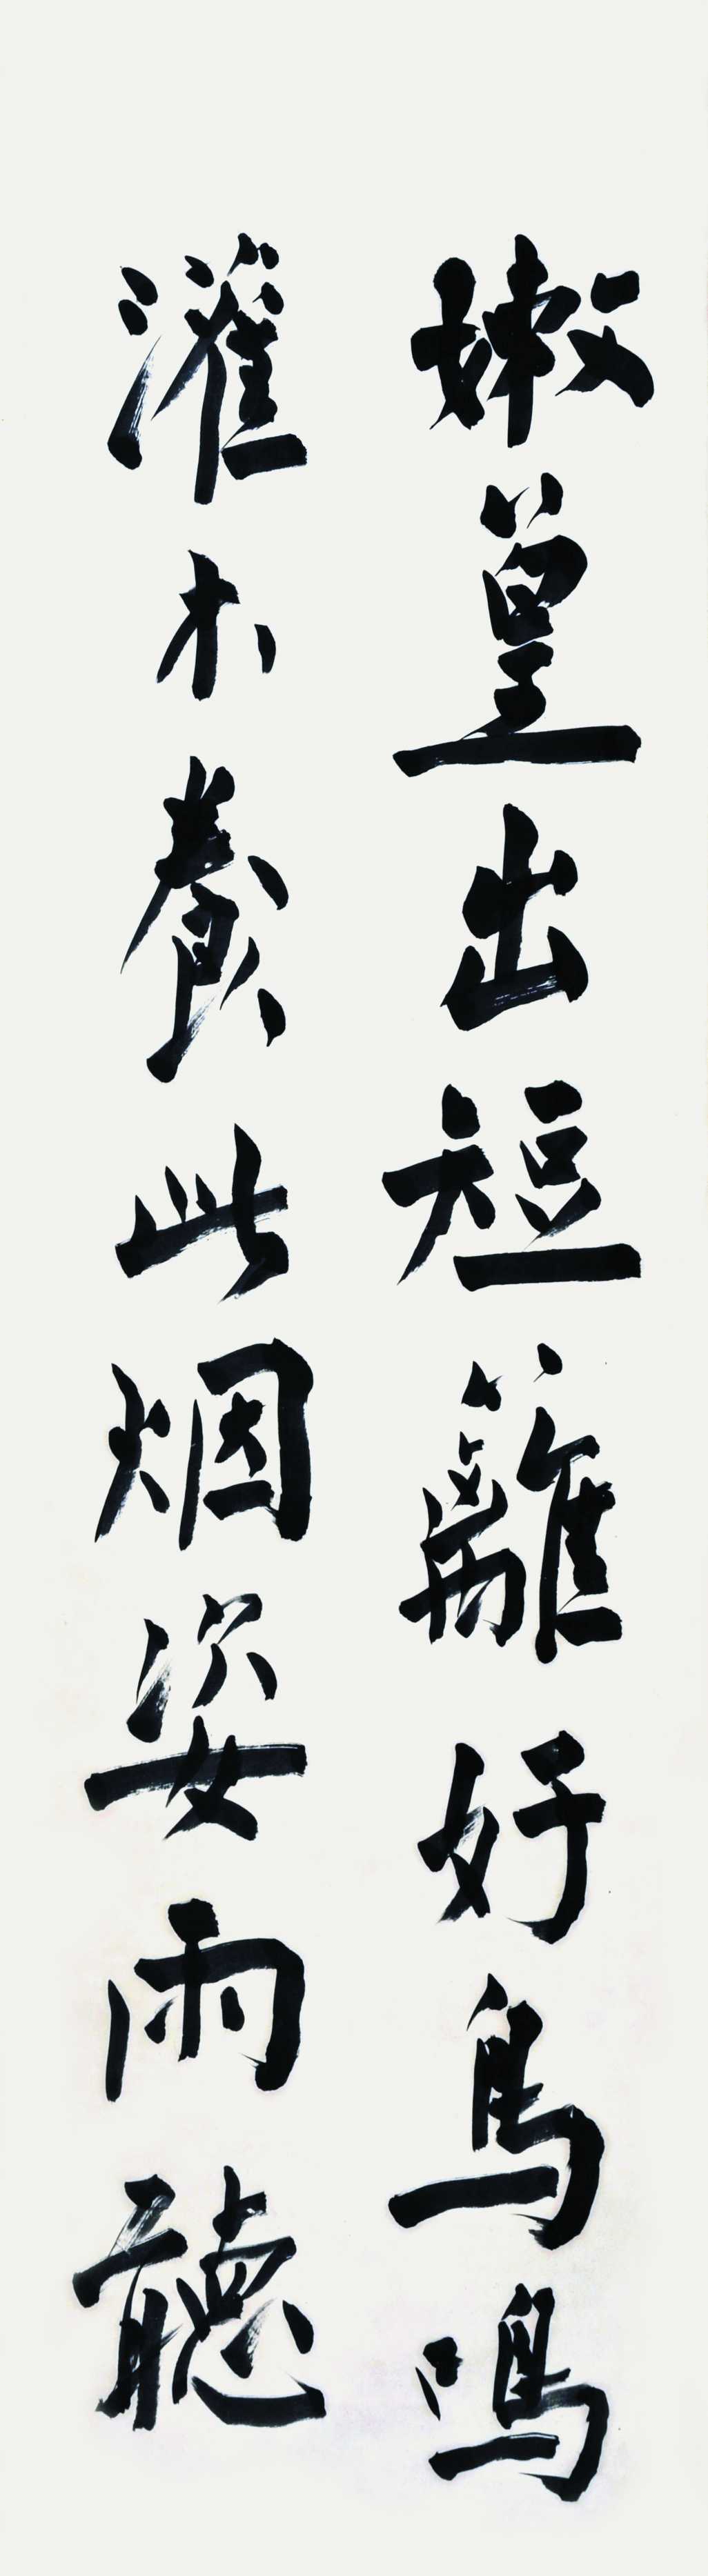 嫩篁出短籬好鳥鳴
灌木養此烟姿雨聽